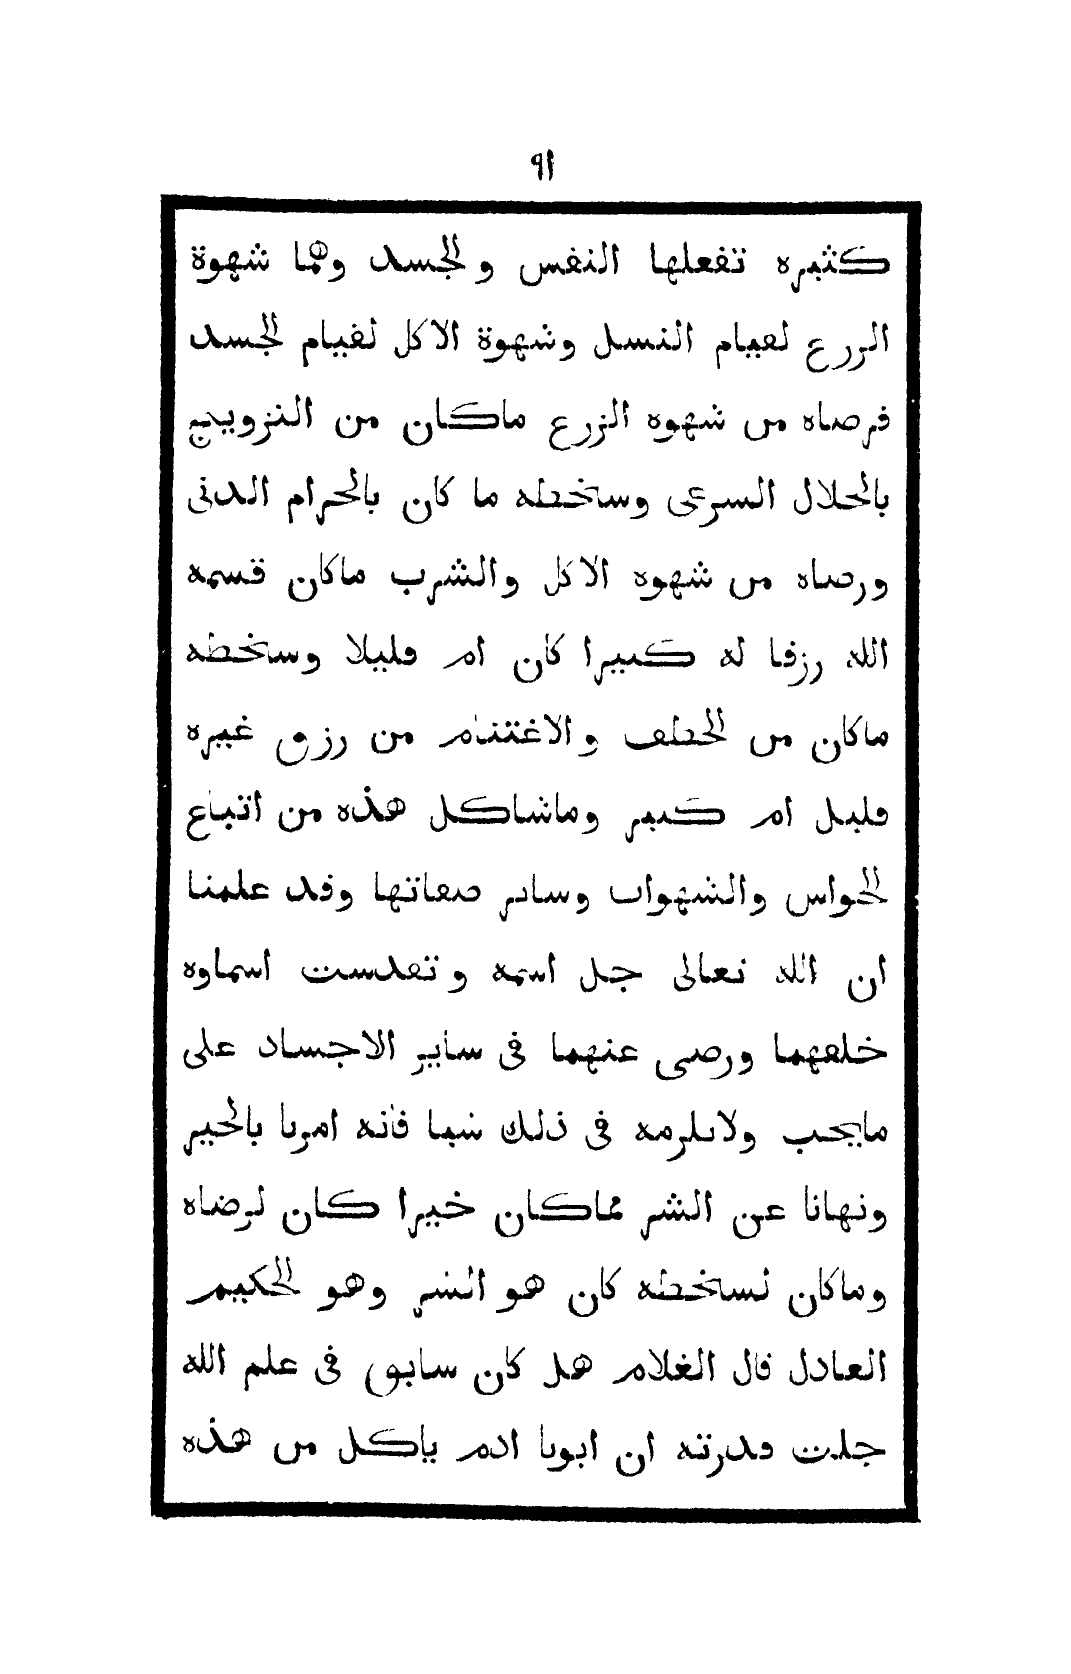 ٩١
كثيره تفعلها النفس والجسد وهما شهوة
الزرع لقيام النسل وشهوة الاكل لقيام الجسد
فرضاه من شهوه الزرع ماكان من التزويج
بالحلال السرعى وسخطه ما كان بالحرام الدنى
ورضاه من شهوه الاكل والشرب ماكان قسمه
الله رزقا له كبيرا كان ام قليلا وسخطه
ماكان من الخطف والاغتنام من رزق غيره
قليل ام كبير وماشاكل هذه من اتباع
الحواس والشهوات وساير صفاتها وقد علمنا
ان الله تعالى جل اسمه وتقدست اسماوه
خلقهما ورضى عنهما فى ساير الاجساد على
مايجب ولايلزمه فى ذلك شيا فانه امرنا بالخير
ونهانا عن الشر فماكان خيرا كان لرضاه
وماكان لسخطه كان هو الشر وهو الحكيم
العادل قال الغلام هل كان سابق فى علم الله
جلت قدرته ان ابونا ادم ياكل من هذه